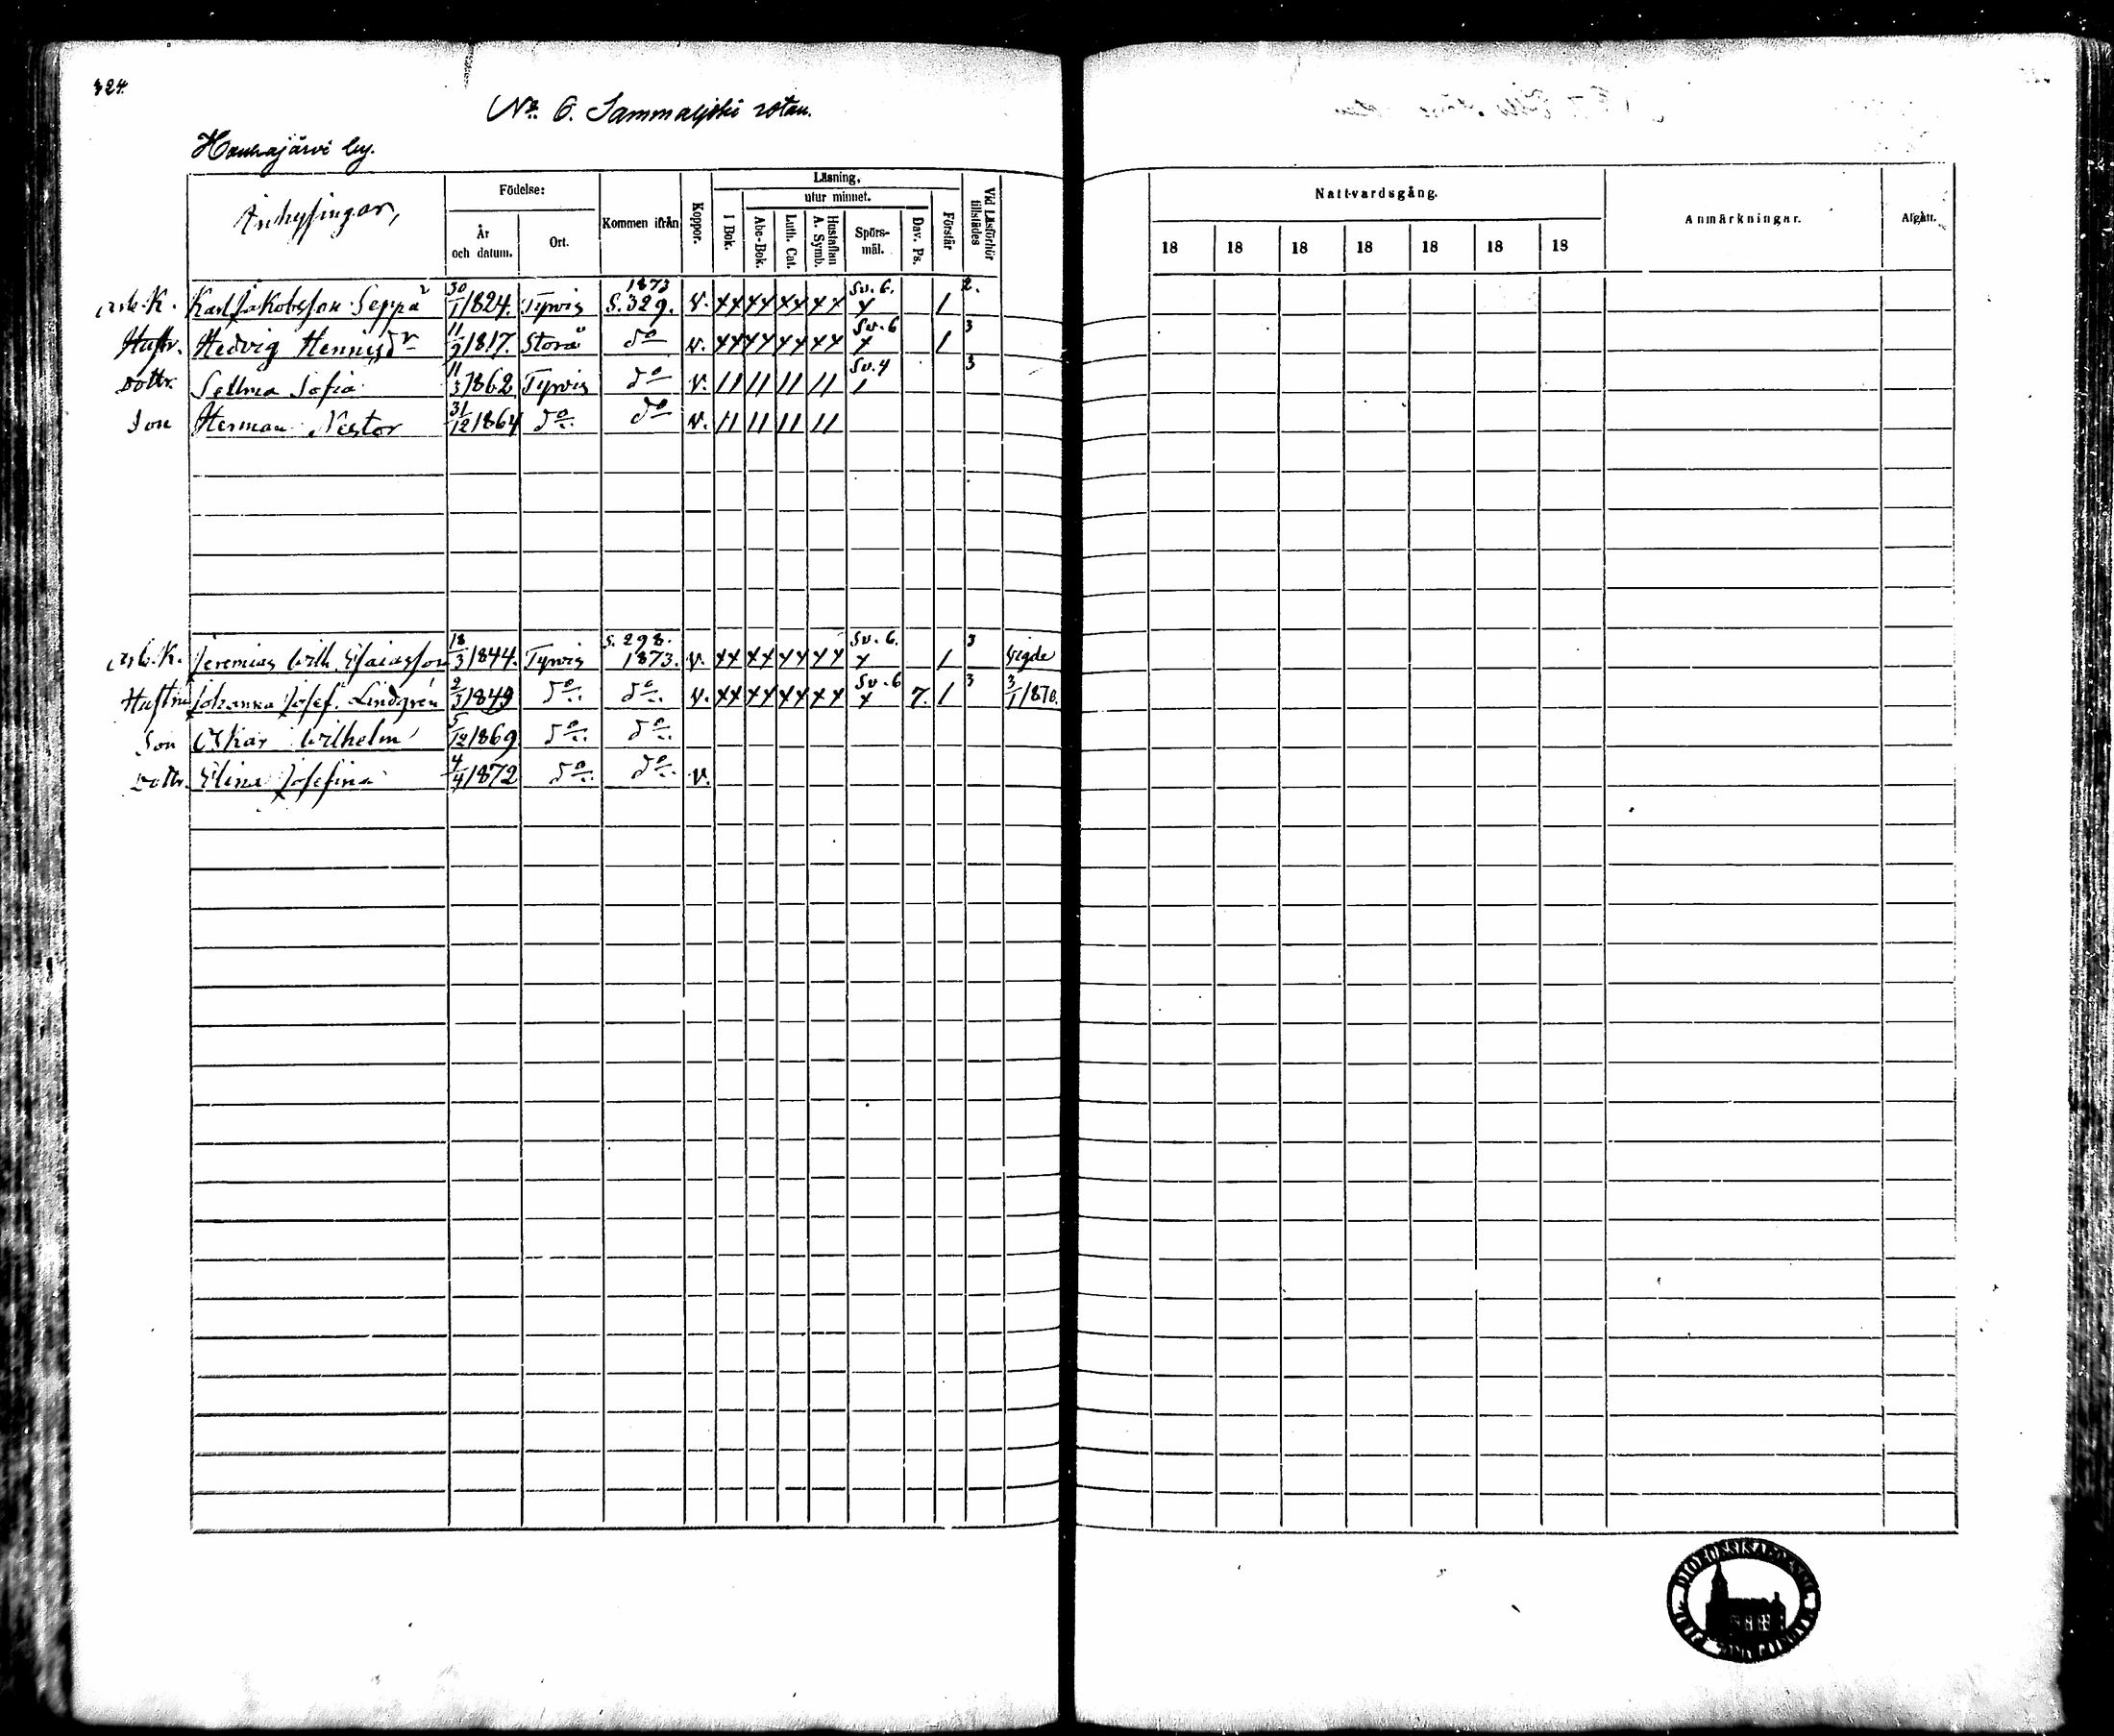 324.
No. 6. Sammaljoki rotan.
Houhajärvi by.
Inhysingar,
Födelse:
År och datum.
Ort.
Kommen ifrån
Koppor.
Läsning,
utur minnet.
I Bok.
Abc-Bok.
Luth. Cat.
Hustaflan A. Symb.
Spörs-mål.
Dav. Ps.
Förstår
Vid Läsförhör tillstädes
Nattvardsgång.
18 18 18 18 18 18 18
Anmärkningar.
Afgått.
arb. K. Karl Jakobsson Seppä 30/1 1824. Tyrvis 1873 S. 329. v. xx xx xx xx Sv. 6. x / 2.
Hustr. Hedvig Henricsdr 11/9 1817. Storå do v. xx xx xx xx Sv. 6 x / 3
Dottr. Sellma Sofia 11/3 1862 Tyrvis do v. // // // // Sv. 4 / 3
Son Herman Nestor 31/12 1864 do do v. // // // //
arb. K. Jeremias Wilh. Esaiasson 18/3 1844. Tyrvis S. 298. 1873. v. xx xx xx xx Sv. 6. x / 3 Vigde
Hustru Johanna Josef. Lindgrén 2/3 1849 do do v. xx xx xx xx Sv. 6 x 7. / 3 3/1 1870.
Son Oskar Wilhelm 5/12 1869 do do
Dottr. Elina Josefina 4/4 1872 do do v.